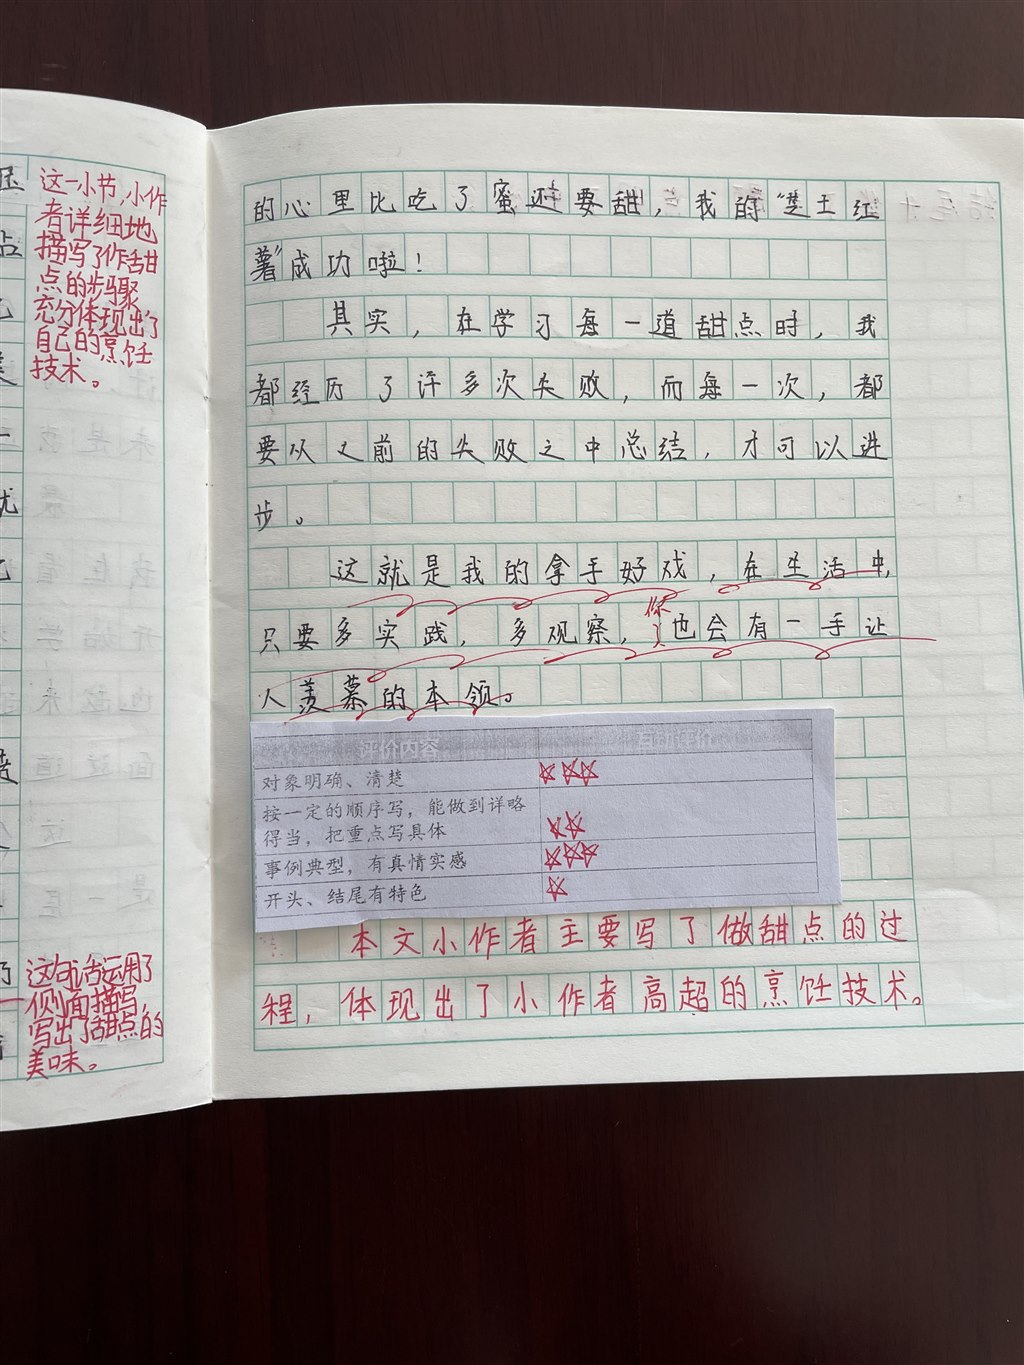 这一小节,小作
者详细地
描写了作甜
点的步骤
充分体现出了
自己的烹饪
技术。
这句话运用了
侧面描写,
写出了甜点的
美味。
的心里比吃了蜜还要甜,我的“楚土红
薯”成功啦!
其实,在学习每一道甜点时,我
都经历了许多次失败,而每一次,都
要从之前的失败之中总结,才可以进
步。
这就是我的拿手好戏,在生活中,
只要多实践,多观察,你也会有一手让
人羡慕的本领。
评价内容 互动评价
对象明确、清楚 ☆☆☆
按一定的顺序写,能做到详略
得当,把重点写具体 ☆☆
事例典型,有真情实感 ☆☆☆
开头、结尾有特色 ☆
本文小作者主要写了做甜点的过
程,体现出了小作者高超的烹饪技术。